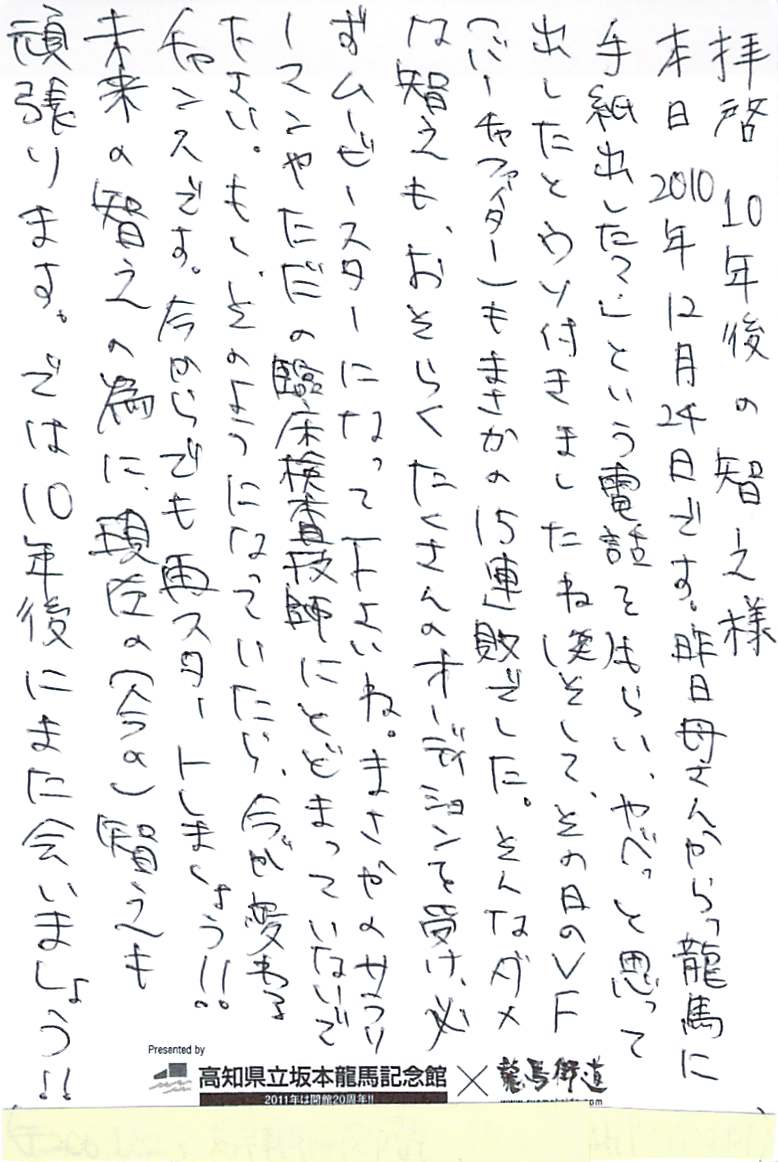 拝啓 10年後の智え様
本日2010年12月24日です。昨日母さんから「龍馬に
手紙出した?」という電話をもらい、やべっと思って
出したとウソ付きましたね(笑)そして、その日のVF
(バーチャファイター)もまさかの15連敗でした。そんなダメ
な智えも、おそらくたくさんのオーディションを受け、必
ずムービースターになって下さいね。まさかのサラリ
ーマンやただの臨床検査技師にとどまっていないで
下さい。もし、そのようになっていたら、今が変わる
チャンスです。今からでも再スタートしましょう!!
未来の智えの為に、現在の(今の)智えも
頑張ります。では10年後にまた会いましょう!!
Presented by
高知県立坂本龍馬記念館×龍馬街道
2011年は開館20周年!!